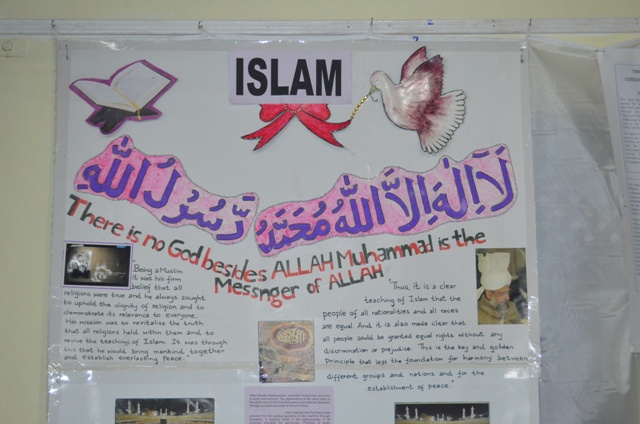 ISLAM
لَآ اِلٰهَ اِلاَّ اللّٰهُ مُحَمَّدٌ رَّسُوْلُ اللّٰهِ
There is no God besides ALLAH Muhammad is the
Messnger of ALLAH
"Being a Muslim
it was his firm
belief that all
religions were true and he always sought
to uphold the dignity of religion and to
demonstrate its relevance to everyone.
His mission was to revitalise the truth
that all religions held within them and to
revive the teaching of Islam. It was through
this that he would bring mankind together
and establish everlasting Peace."
"Thus, it is a clear
teaching of Islam that the
people of all nationalities and all races
are equal. And it is also made clear that
all people sould be granted equal rights without any
discrimination or prejudice. This is the key and golden
Principle that lays the foundation for harmony between
different groups and nations and for the
establishment of peace."